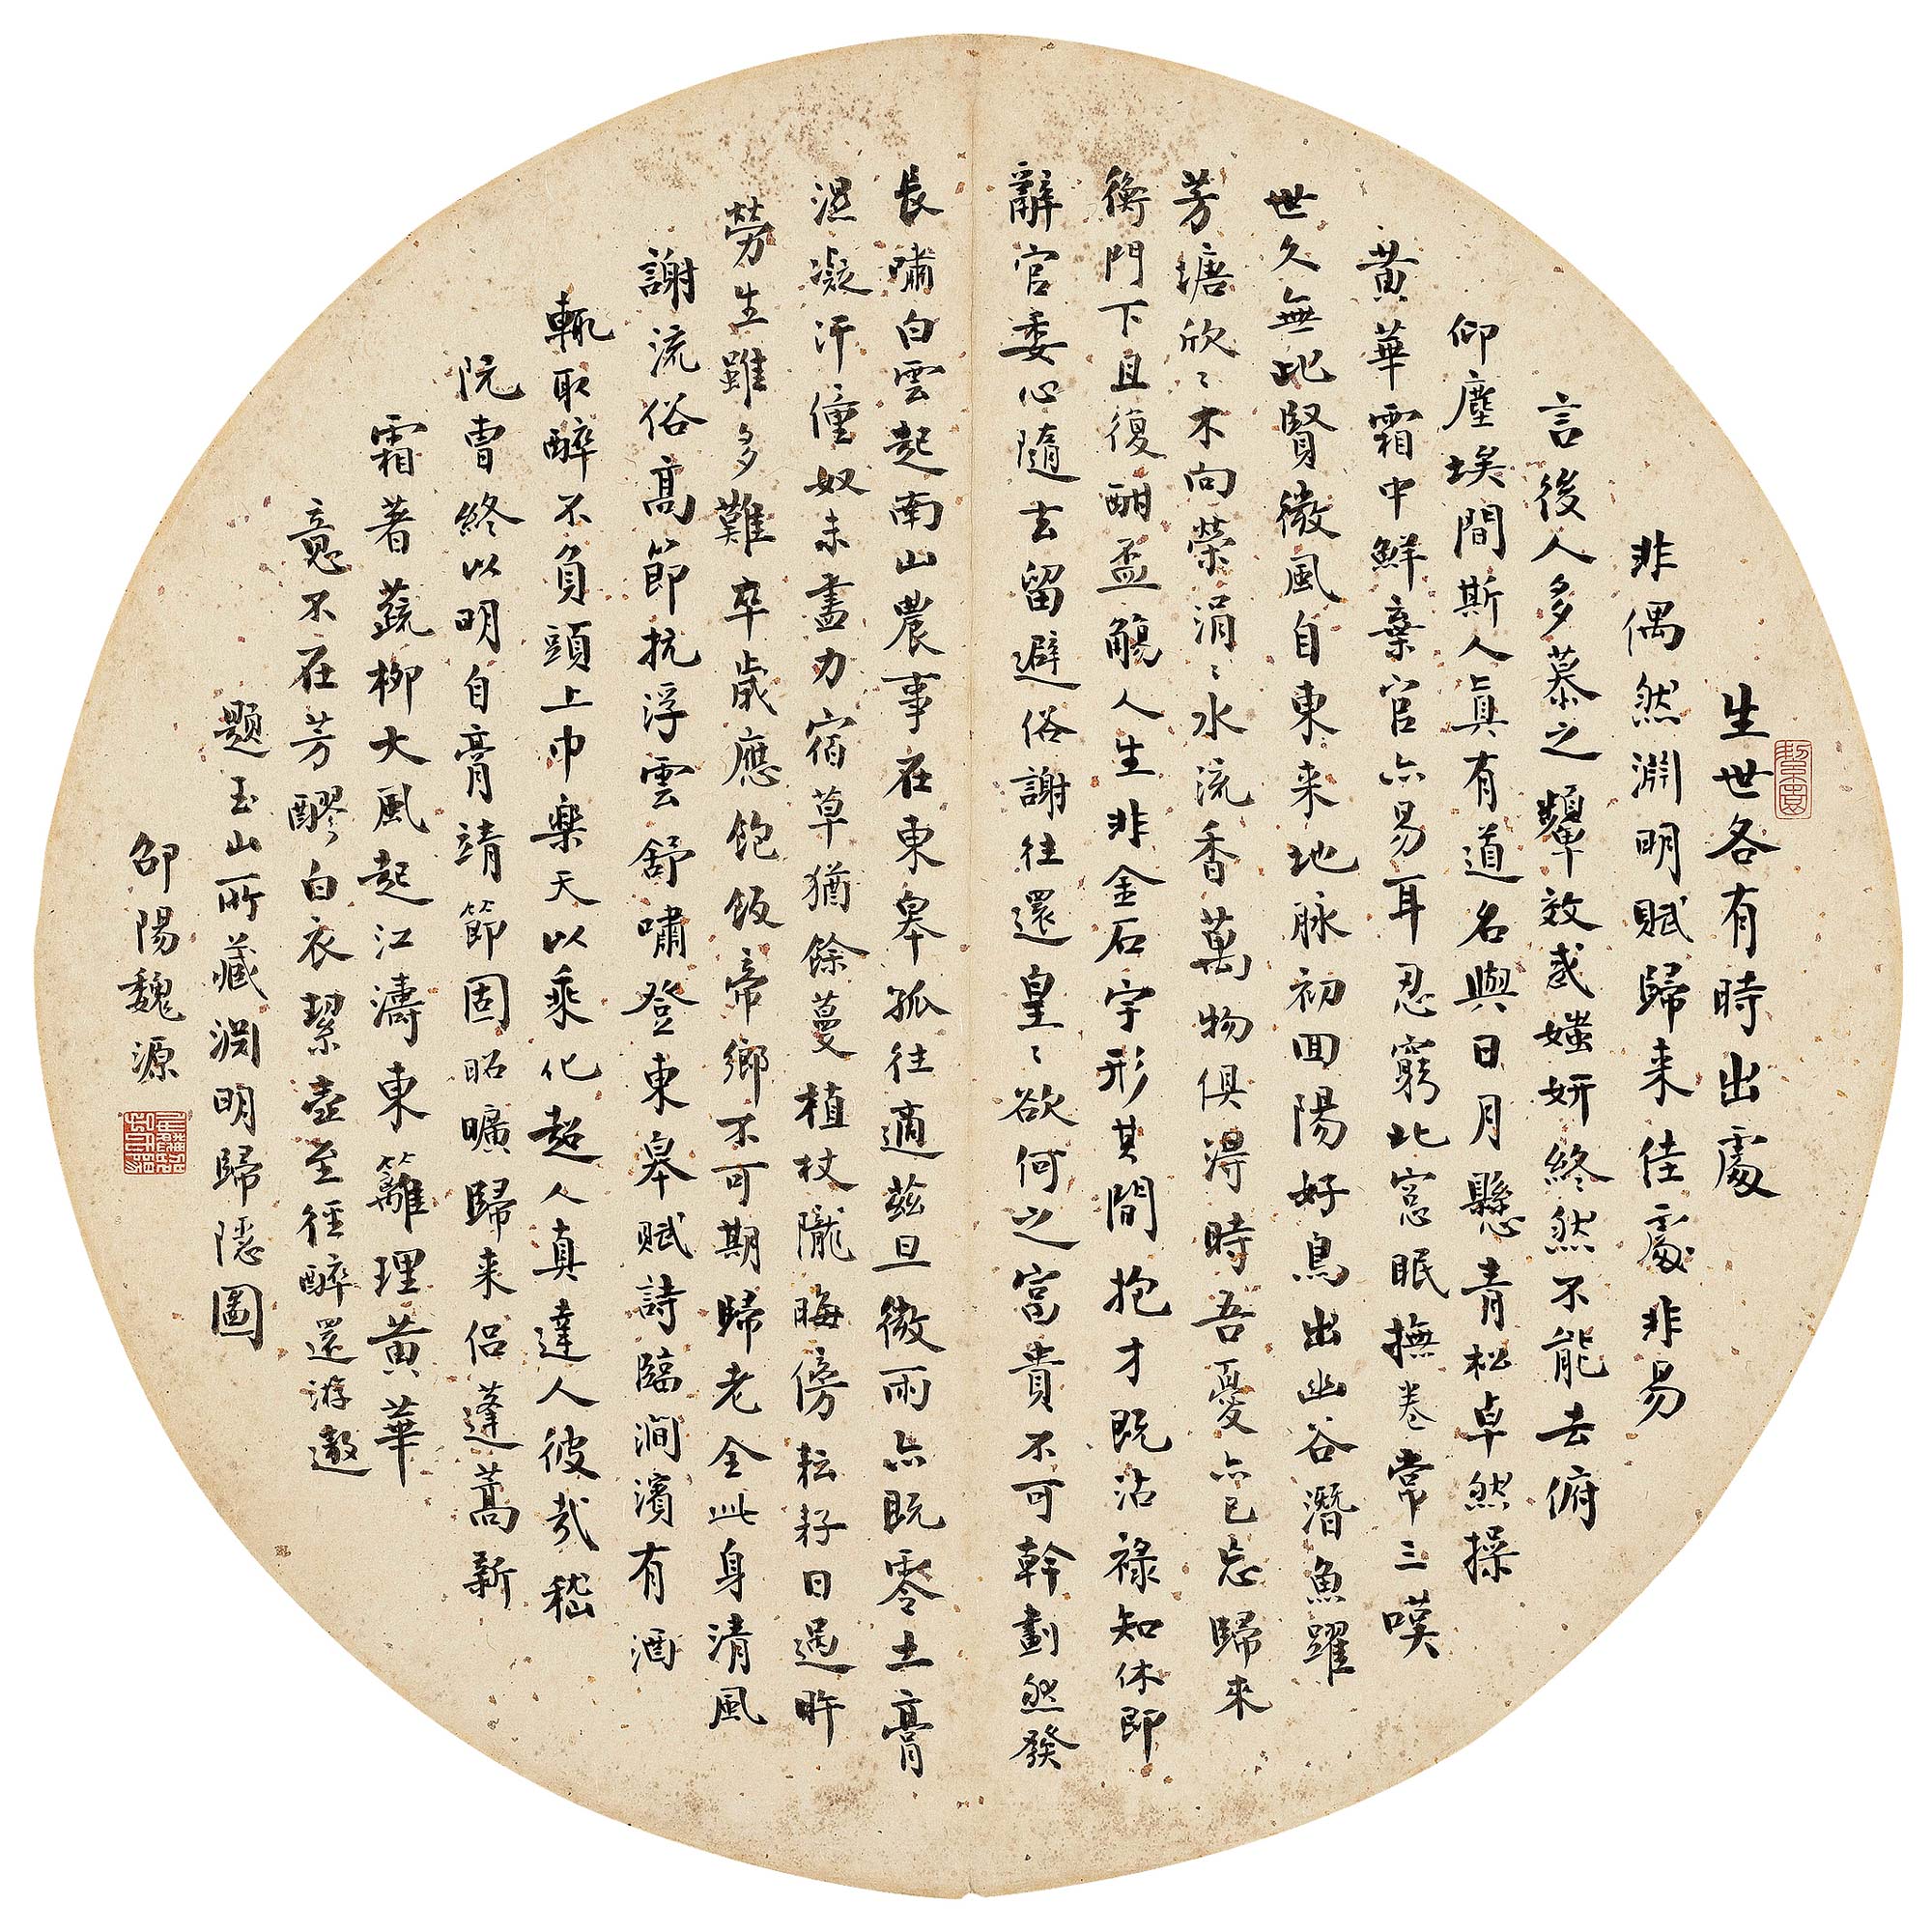 生世各有時出處
非偶然淵明賦歸来佳處非易
言後人多慕之顰效惑媸妍終然不能去俯
仰塵埃間斯人真有道名與日月懸青松卓然操
黃華霜中鮮棄官亦易耳忍窮北窓眠撫卷常三嘆
世久無此賢微風自東来地脉初回陽好鳥出幽谷潛魚躍
芳塘欣〻木向榮涓〻水流香萬物俱得時吾憂亦已忘歸來
衡門下且復酣盃觴人生非金石宇形其間抱才既沾祿知休即
辭官委心隨去留避俗謝往還皇〻欲何之富貴不可幹劃然發
長嘯白雲起南山農事在東皋孤往適茲旦微雨亦既零土膏
濕凝汗僮奴未盡力宿草猶餘蔓植杖隴晦傍耘耔日過旰
勞生雖多難卒歲應飽飯帝鄉不可期歸老全此身清風
謝流俗高節抗浮雲舒嘯登東皋賦詩臨澗濱有酒
輒取醉不負頭上巾樂天以乘化超人真達人彼哉嵇
阮曹終以明自膏靖節固昭曠歸来侶蓬蒿新
霜著蔬柳大風起江濤東籬理黃華
意不在芳醪白衣挈壺至徑醉還游遨
題玉山所藏淵明歸隱圖
邵陽魏源